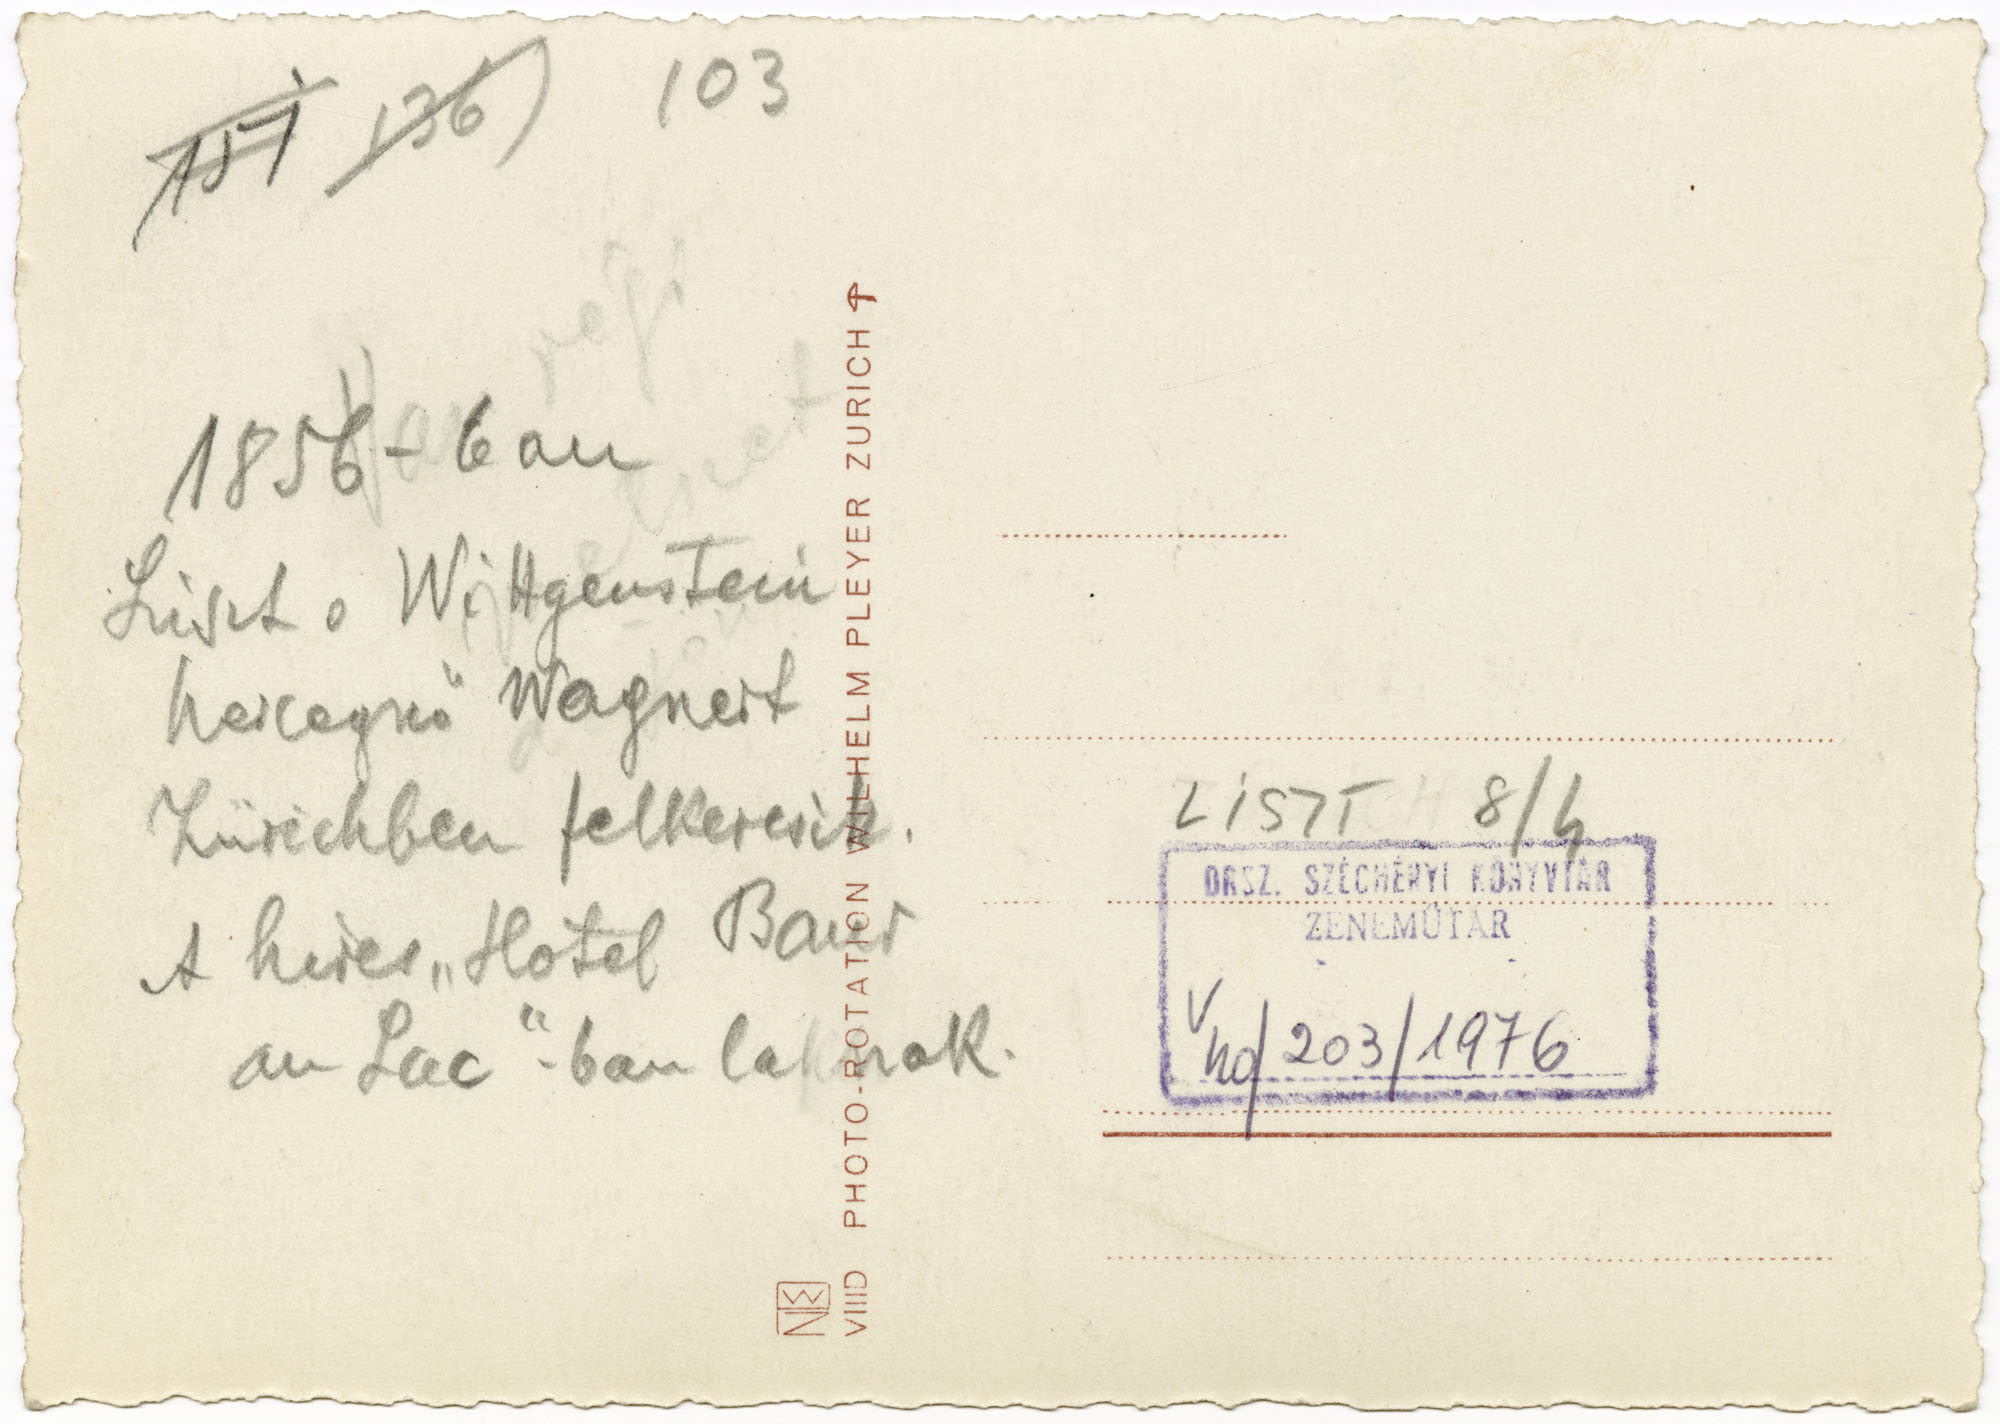 157 136 103
régi
1856-ban
Liszt s Wittgenstein
hercegnő Wagnert
Zürichben felkeresik.
A híres „Hotel Baur
au Lac"-ban laknak.
VIIID PHOTO-ROTATION WILHELM PLEYER ZURICH
LISZT 8/4
ORSZ. SZÉCHÉNYI KÖNYVTÁR
ZENEMŰTÁR
203/1976